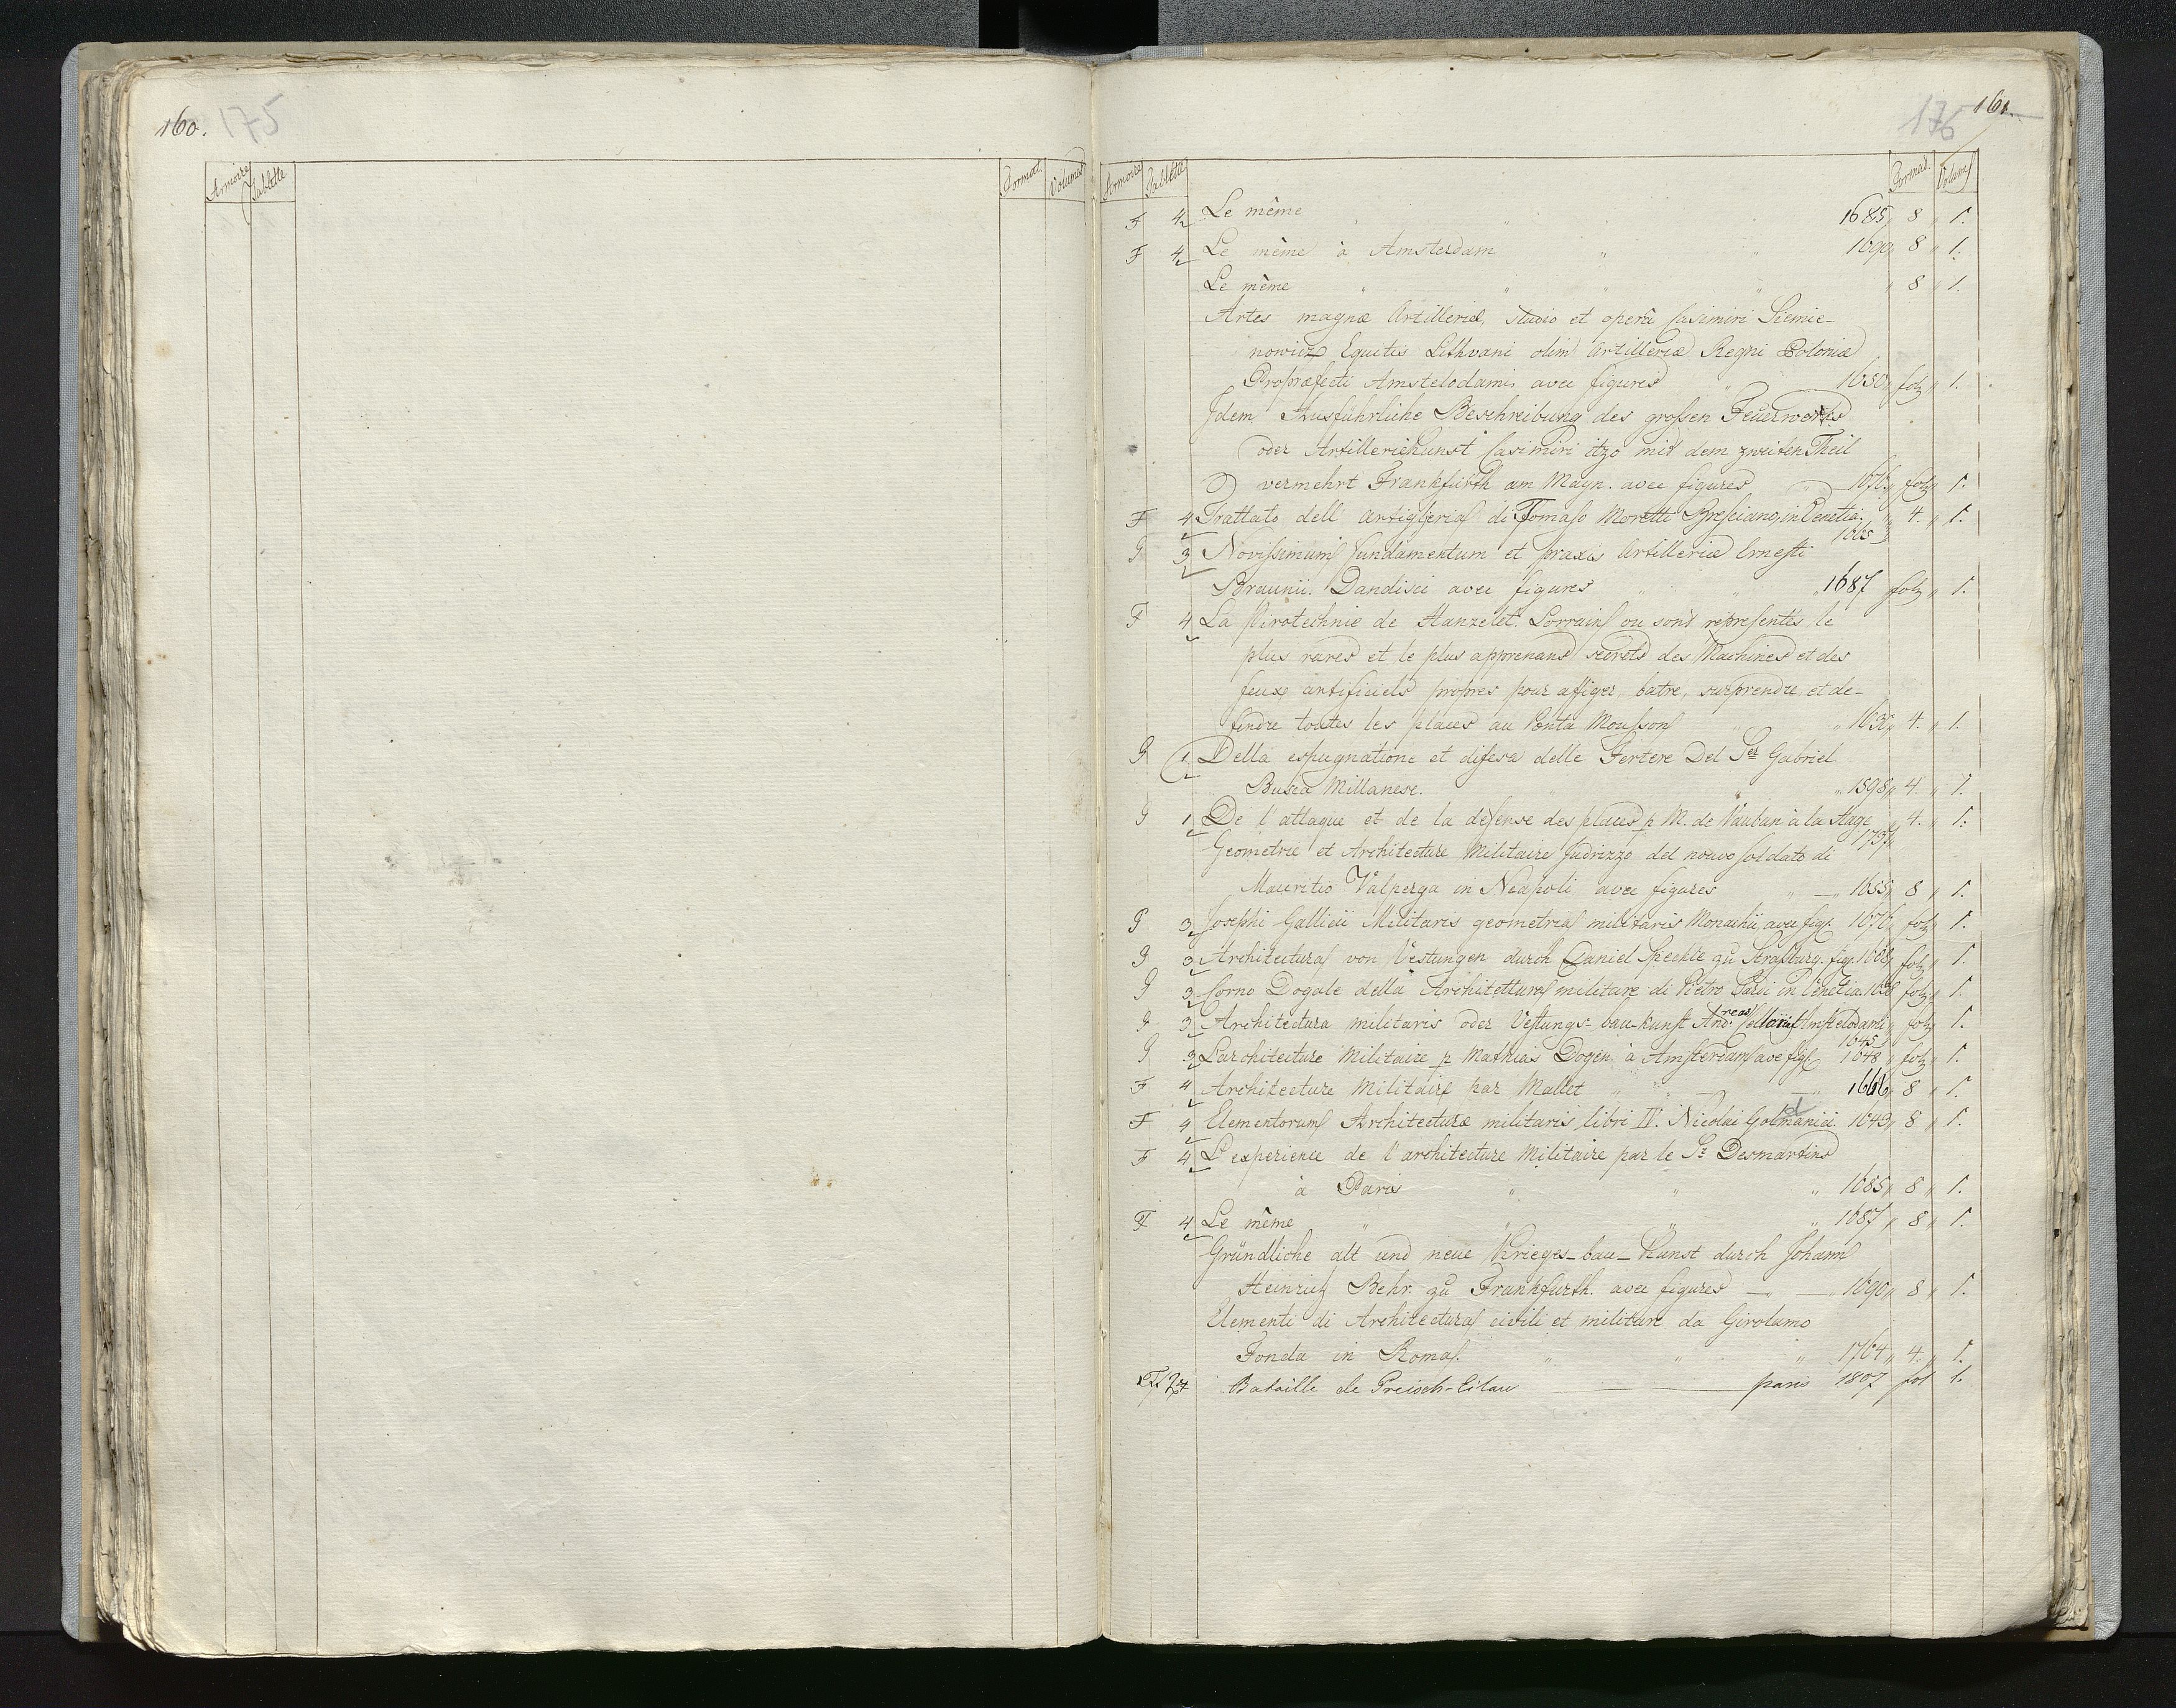 160. 175
Armoire Tablette Format. Volumes
176 161.
Armoire Tablette Format. Volumes
F 4 Le même 1685 8 1.
F 4 Le même à Amsterdam 1690 8 1.
Le même 8 1.
Artes magnæ Artilleriæ, studio et operâ Casimiri Siemie-
nowicz Equitis Lithvani olim Artilleriæ Regni Poloniæ
Propræfecti Amstelodami avec figures 1650 fol 1.
Idem Ausführliche Beschreibung des grossen Feuerwerks
oder Artilleriekunst Casimiri itzo mit dem zweiten Theil
vermehrt Frankfürth am Mayn. avec figures 1676 fol 1.
F 4 Trattato dell artiglieria di Tomaso Moretti Bresciano, in Venetia. 4. 1.
1665
G 3 Novissimum fundamentum et praxis Artilleriæ Ernesti
Braunii. Dandisci avec figures 1687 fol 1.
F 4 La Pirotechnie de Hanzelet Lorrain ou sont representés le
plus rares et le plus apprenans secrets des Machines et des
feux artificiels propres pour assiger, batre, surprendre et de-
fendre toutes les places au Ponta Mousson 1630 4. 1.
G 1 Della espugnatione et difesa delle Fortere Del Ser Gabriel
Busca Millanese. 1598 4. 1.
G 1 De l'attaque et de la defense des places p M. de Vauban à la Haye 4. 1.
1737
Geometrie et Architecture Militaire Indrizzo del nouvo soldato di
Mauritio Valperga in Neapoli avec figures 1655 8 1.
G 3 Josephi Gallicii Militaris geometria militaris Monachii, avec fig. 1676 fol 1.
G 3 Architectura von Vestungen durch Daniel Speckle zu Strassburg. fig. 1608 fol 1.
G 3 Corno Dogale della Architettura militare di Pietro Sardi in Venetia. fol 1.
G 3 Architectura militaris oder Vestungs-bau-kunst Andreas Cellarii Amstelodami fol 1.
1645
G 3 L'architecture Militaire p Mathias Dogen à Amsterdam ave fig. 1648 fol 1.
F 4 Architecture Militaire par Mallet 1666 8 1.
F 4 Elementorum Architecturæ militaris libri IV. Nicolai Golmanici. 1643 8 1.
F 4 L'experience de l'architecture Militaire par le Sr Desmartins
à Paris 1685 8 1.
F 4 Le même 1687 8 1.
Gründliche alt und neue Krieges-bau-Kunst durch Johann
Heinrich Behr. zu Frankfurth. avec figures 1690 8 1.
Elementi di Architectura civili et militare da Girolamo
Fonda in Roma. 1764 4. 1.
Bataille de Preisch-Eilau paris 1807 fol 1.